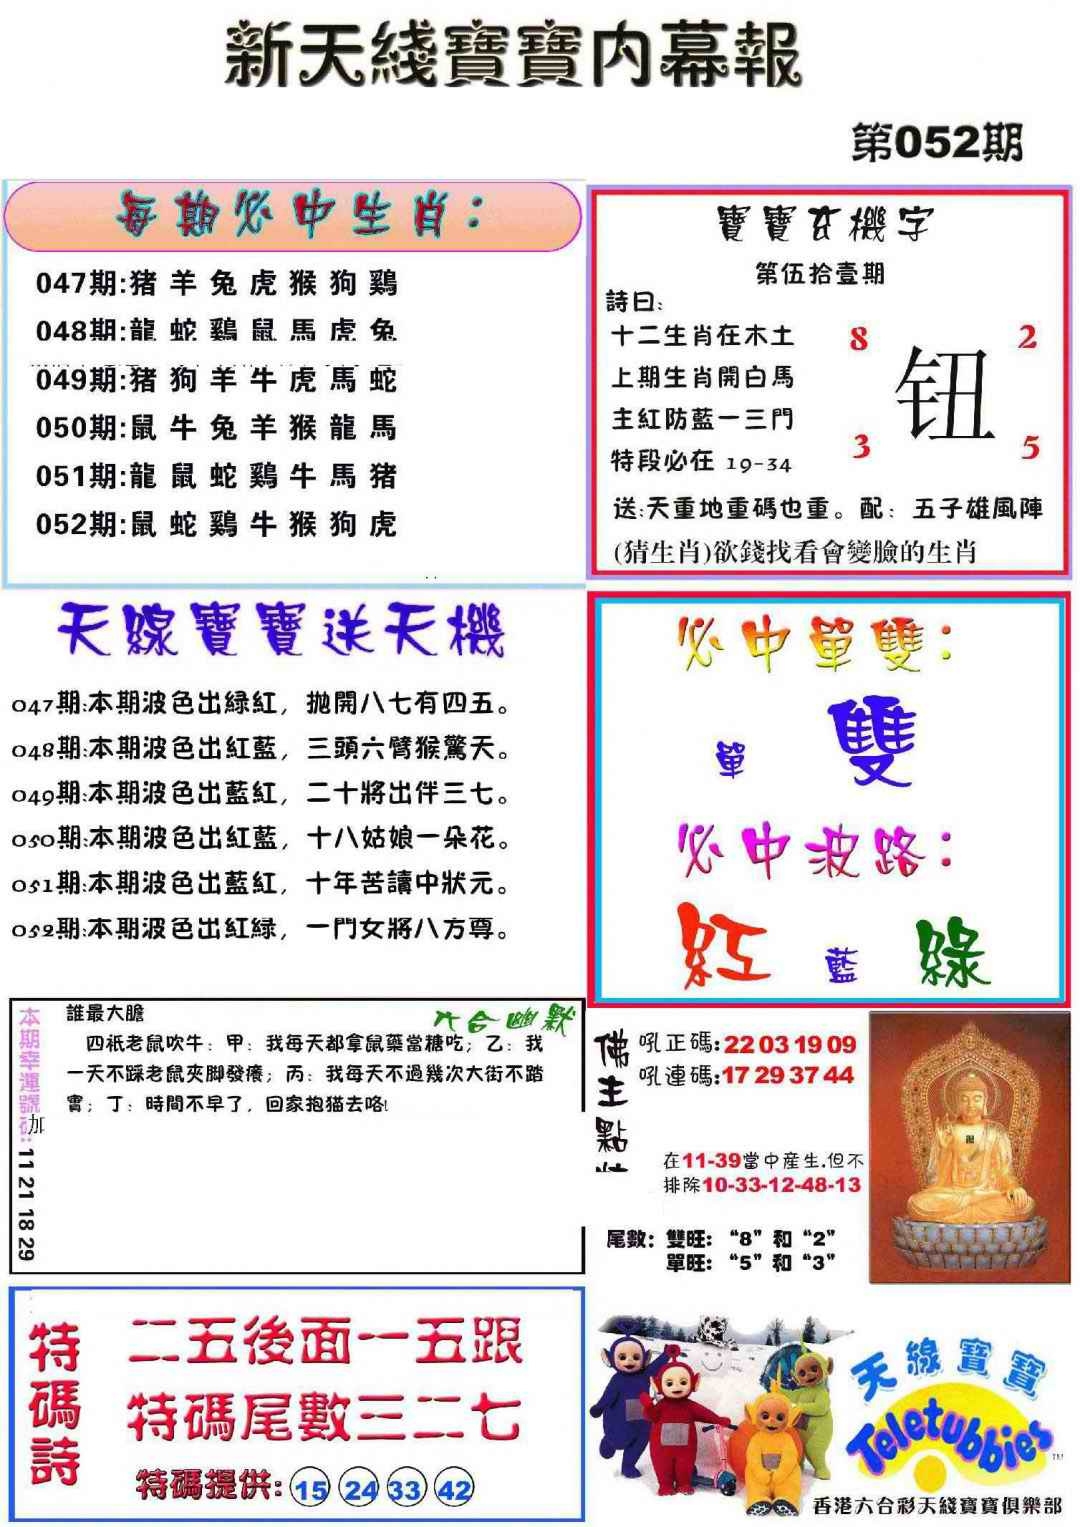 新天綫寶寶内幕報
第052期
每期必中生肖：
047期:猪羊兔虎猴狗鷄
048期:龍蛇鷄鼠馬虎兔
049期:猪狗羊牛虎馬蛇
050期:鼠牛兔羊猴龍馬
051期:龍鼠蛇鷄牛馬猪
052期:鼠蛇鷄牛猴狗虎
寶寶玄機字
第伍拾壹期
詩曰:
十二生肖在木土
上期生肖開白馬
主紅防藍一三門
特段必在 19-34
8 2
钮
3 5
送:天重地重碼也重。配：五子雄風陣
(猜生肖)欲錢找看會變臉的生肖
天線寶寶送天機
047期:本期波色出緑紅，拋開八七有四五。
048期:本期波色出紅藍，三頭六臂猴驚天。
049期:本期波色出藍紅，二十將出伴三七。
050期:本期波色出紅藍，十八姑娘一朵花。
051期:本期波色出藍紅，十年苦讀中狀元。
052期:本期波色出紅緑，一門女將八方尊。
必中單雙：
單 雙
必中波路：
紅 藍 綠
本期幸運號碼:加 11 21 18 29
六合幽默
誰最大膽
四祇老鼠吹牛：甲：我每天都拿鼠藥當糖吃；乙：我
一天不踩老鼠夾脚發癢；丙：我每天不過幾次大街不踏
實；丁：時間不早了，回家抱猫去咯!
佛主點
吼正碼:22 03 19 09
吼連碼:17 29 37 44
在11-39當中産生.但不
排除10-33-12-48-13
尾數：雙旺：“8”和“2”
單旺：“5”和“3”
特碼詩
二五後面一五跟
特碼尾數三二七
特碼提供: 15 24 33 42
天線寶寶
Teletubbies
TM
香港六合彩天綫寶寶俱樂部